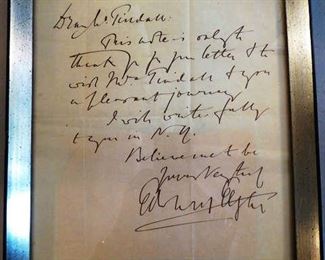 Dear Mr Tindall:
This note is only to
thank you for your letter & to
wish Mrs Tindall & you
a pleasant journey
I will write fully
to you in N. Y.
Believe me to be
Yours very truly